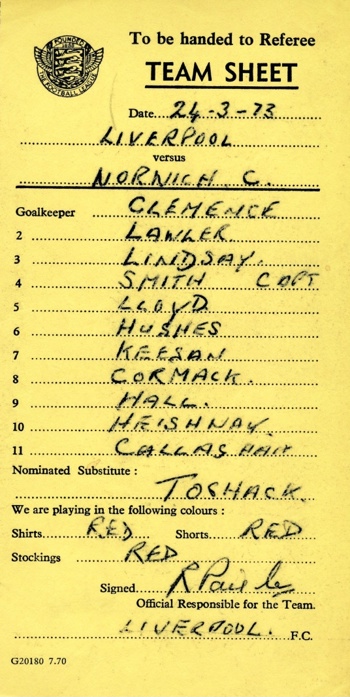 FOUNDED 1888
THE FOOTBALL LEAGUE
To be handed to Referee
TEAM SHEET
Date 24-3-73
LIVERPOOL
versus
NORWICH C.
Goalkeeper CLEMENCE
2 LAWLER
3 LINDSAY.
4 SMITH CAPT
5 LLOYD
6 HUGHES
7 KEEGAN
8 CORMACK.
9 HALL.
10 HEIGHWAY.
11 CALLAGHAN
Nominated Substitute :
TOSHACK.
We are playing in the following colours :
Shirts RED Shorts RED
Stockings RED
Signed R Paisley
Official Responsible for the Team.
LIVERPOOL. F.C.
G20180 7.70